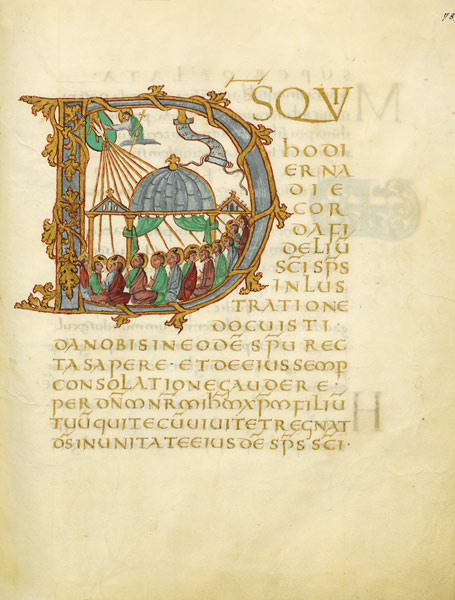 78
DS̄QVI
HODI
ERNA
DIE
COR
DAFI
DELIŪ
SC̄I SP̄S
INLUS
TRATIONE
DOCUISTI
DANOBISINEODĒSPŪREC
TASAPERE·ETDEEIUSSEMP
CONSOLATIONEGAUDERE·
PERDN̄MNR̄MIHM̄XPM̄FILIŪ
TUŪQUITECŪUIUITETREGNAT
DS̄INUNITATEEIUSDĒSP̄SSC̄I·